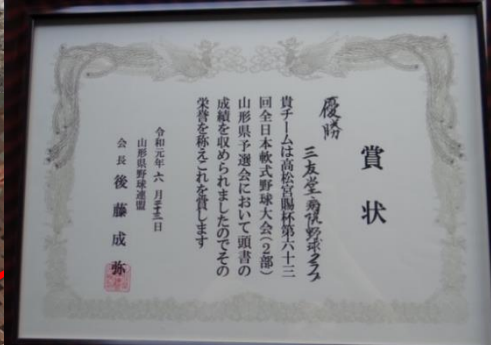 賞状
優勝
三友堂病院野球クラブ
貴チームは高松宮賜杯第六十三
回全日本軟式野球大会(2部)
山形県予選会において頭書の
成績を収められましたのでその
栄誉を称えこれを賞します
令和元年六月二十三日
山形県野球連盟
会長 後藤成弥